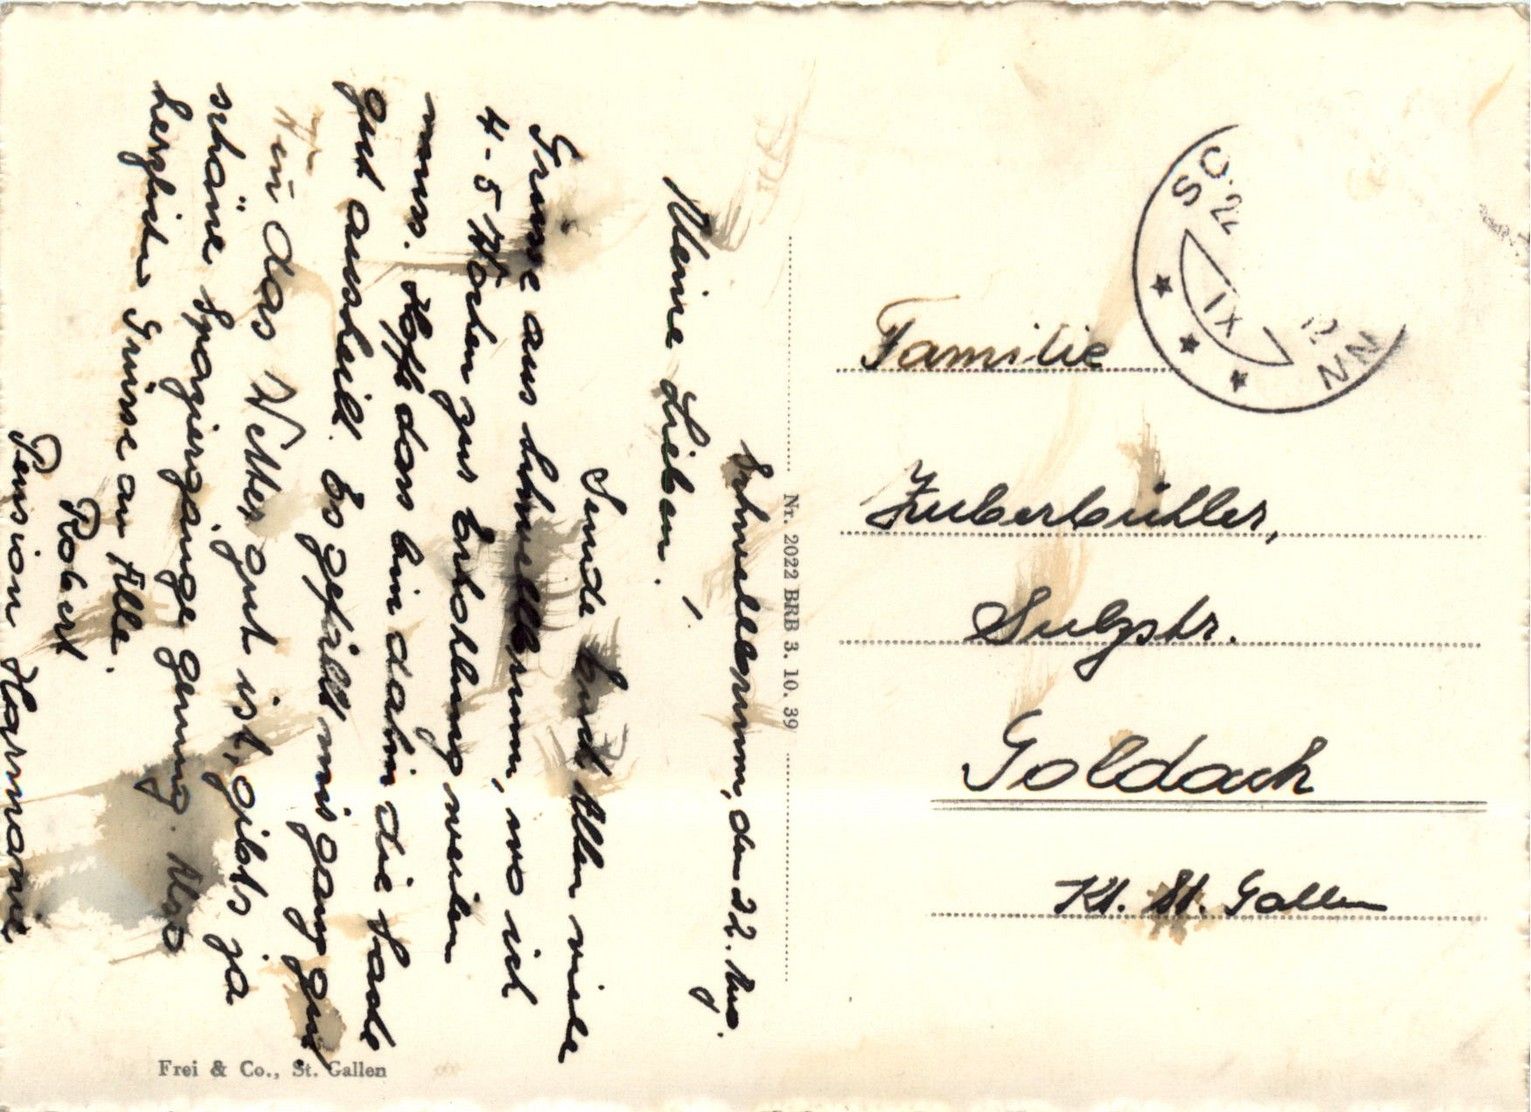 Schwellbrunn, den 22. Aug.
Meine Lieben!
Sende Euch Allen viele
Grüsse aus Schwellbrunn, wo ich
4-5 Wochen zur Erholung weilen
muss. Hoffe dass bin dahin die Sache
gut ausheilt. Es gefällt mir ganz gut
das Wetter gut ist, gibts ja
schöne Spaziergänge genug. Also
herzliche Grüsse an Alle.
Robert
Pension Harmonie
Nr. 2022 BRB 3. 10. 39
Frei & Co., St. Gallen
SC NN
IX
12
Familie
Zuberbühler,
Sulzstr.
Goldach
Kt. St. Gallen